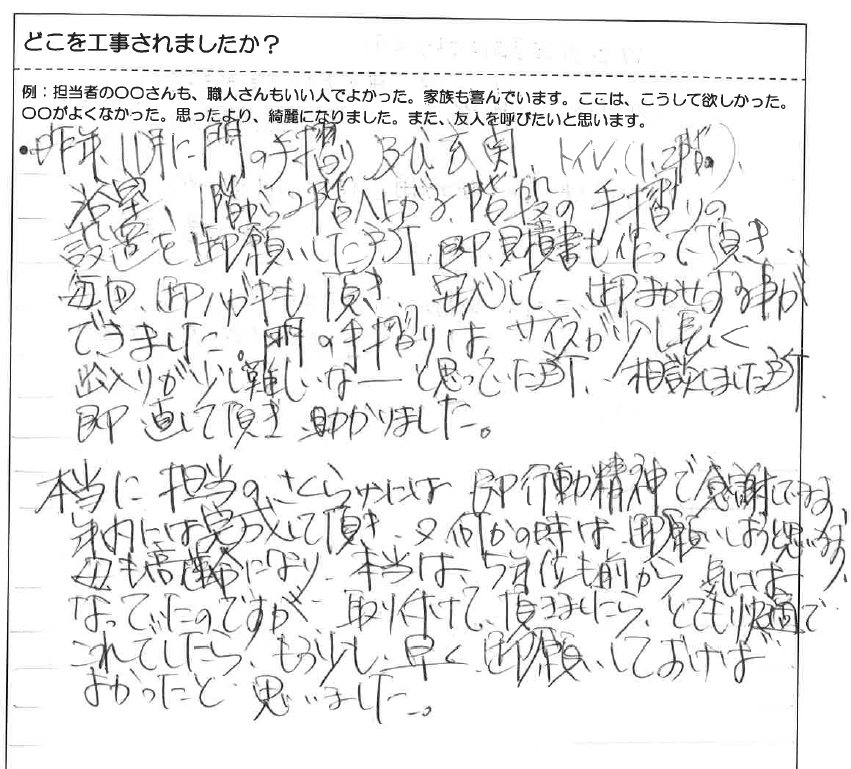 どこを工事されましたか？
例：担当者の〇〇さんも、職人さんもいい人でよかった。家族も喜んでいます。ここは、こうして欲しかった。
〇〇がよくなかった。思ったより、綺麗になりました。また、友人を呼びたいと思います。
●昨年、11月に門の手摺り及び玄関、トイレ（1、2階）、
浴室、1階から2階へ上がる階段の手摺りの
設置を御願いした所、即見積書も作って頂き、
毎回、御ハガキも頂き、安心して御まかせする事が
できました。門の手摺りは、サイズが少し長く
出入りが少し難しいなーと思っていた所、相談しました所
即直して頂き助かりました。
本当に担当のさくらサンには即行動精神で感謝してます、
年内には完成して頂き、又何かの時は、御願いしようと思います、
母も高齢になり、本当は、5年位も前から気には
なっていたのですが、取り付けて頂きましたら、とても快適で
これでしたら、もう少し早く御願いしておけば
よかったと思いました。